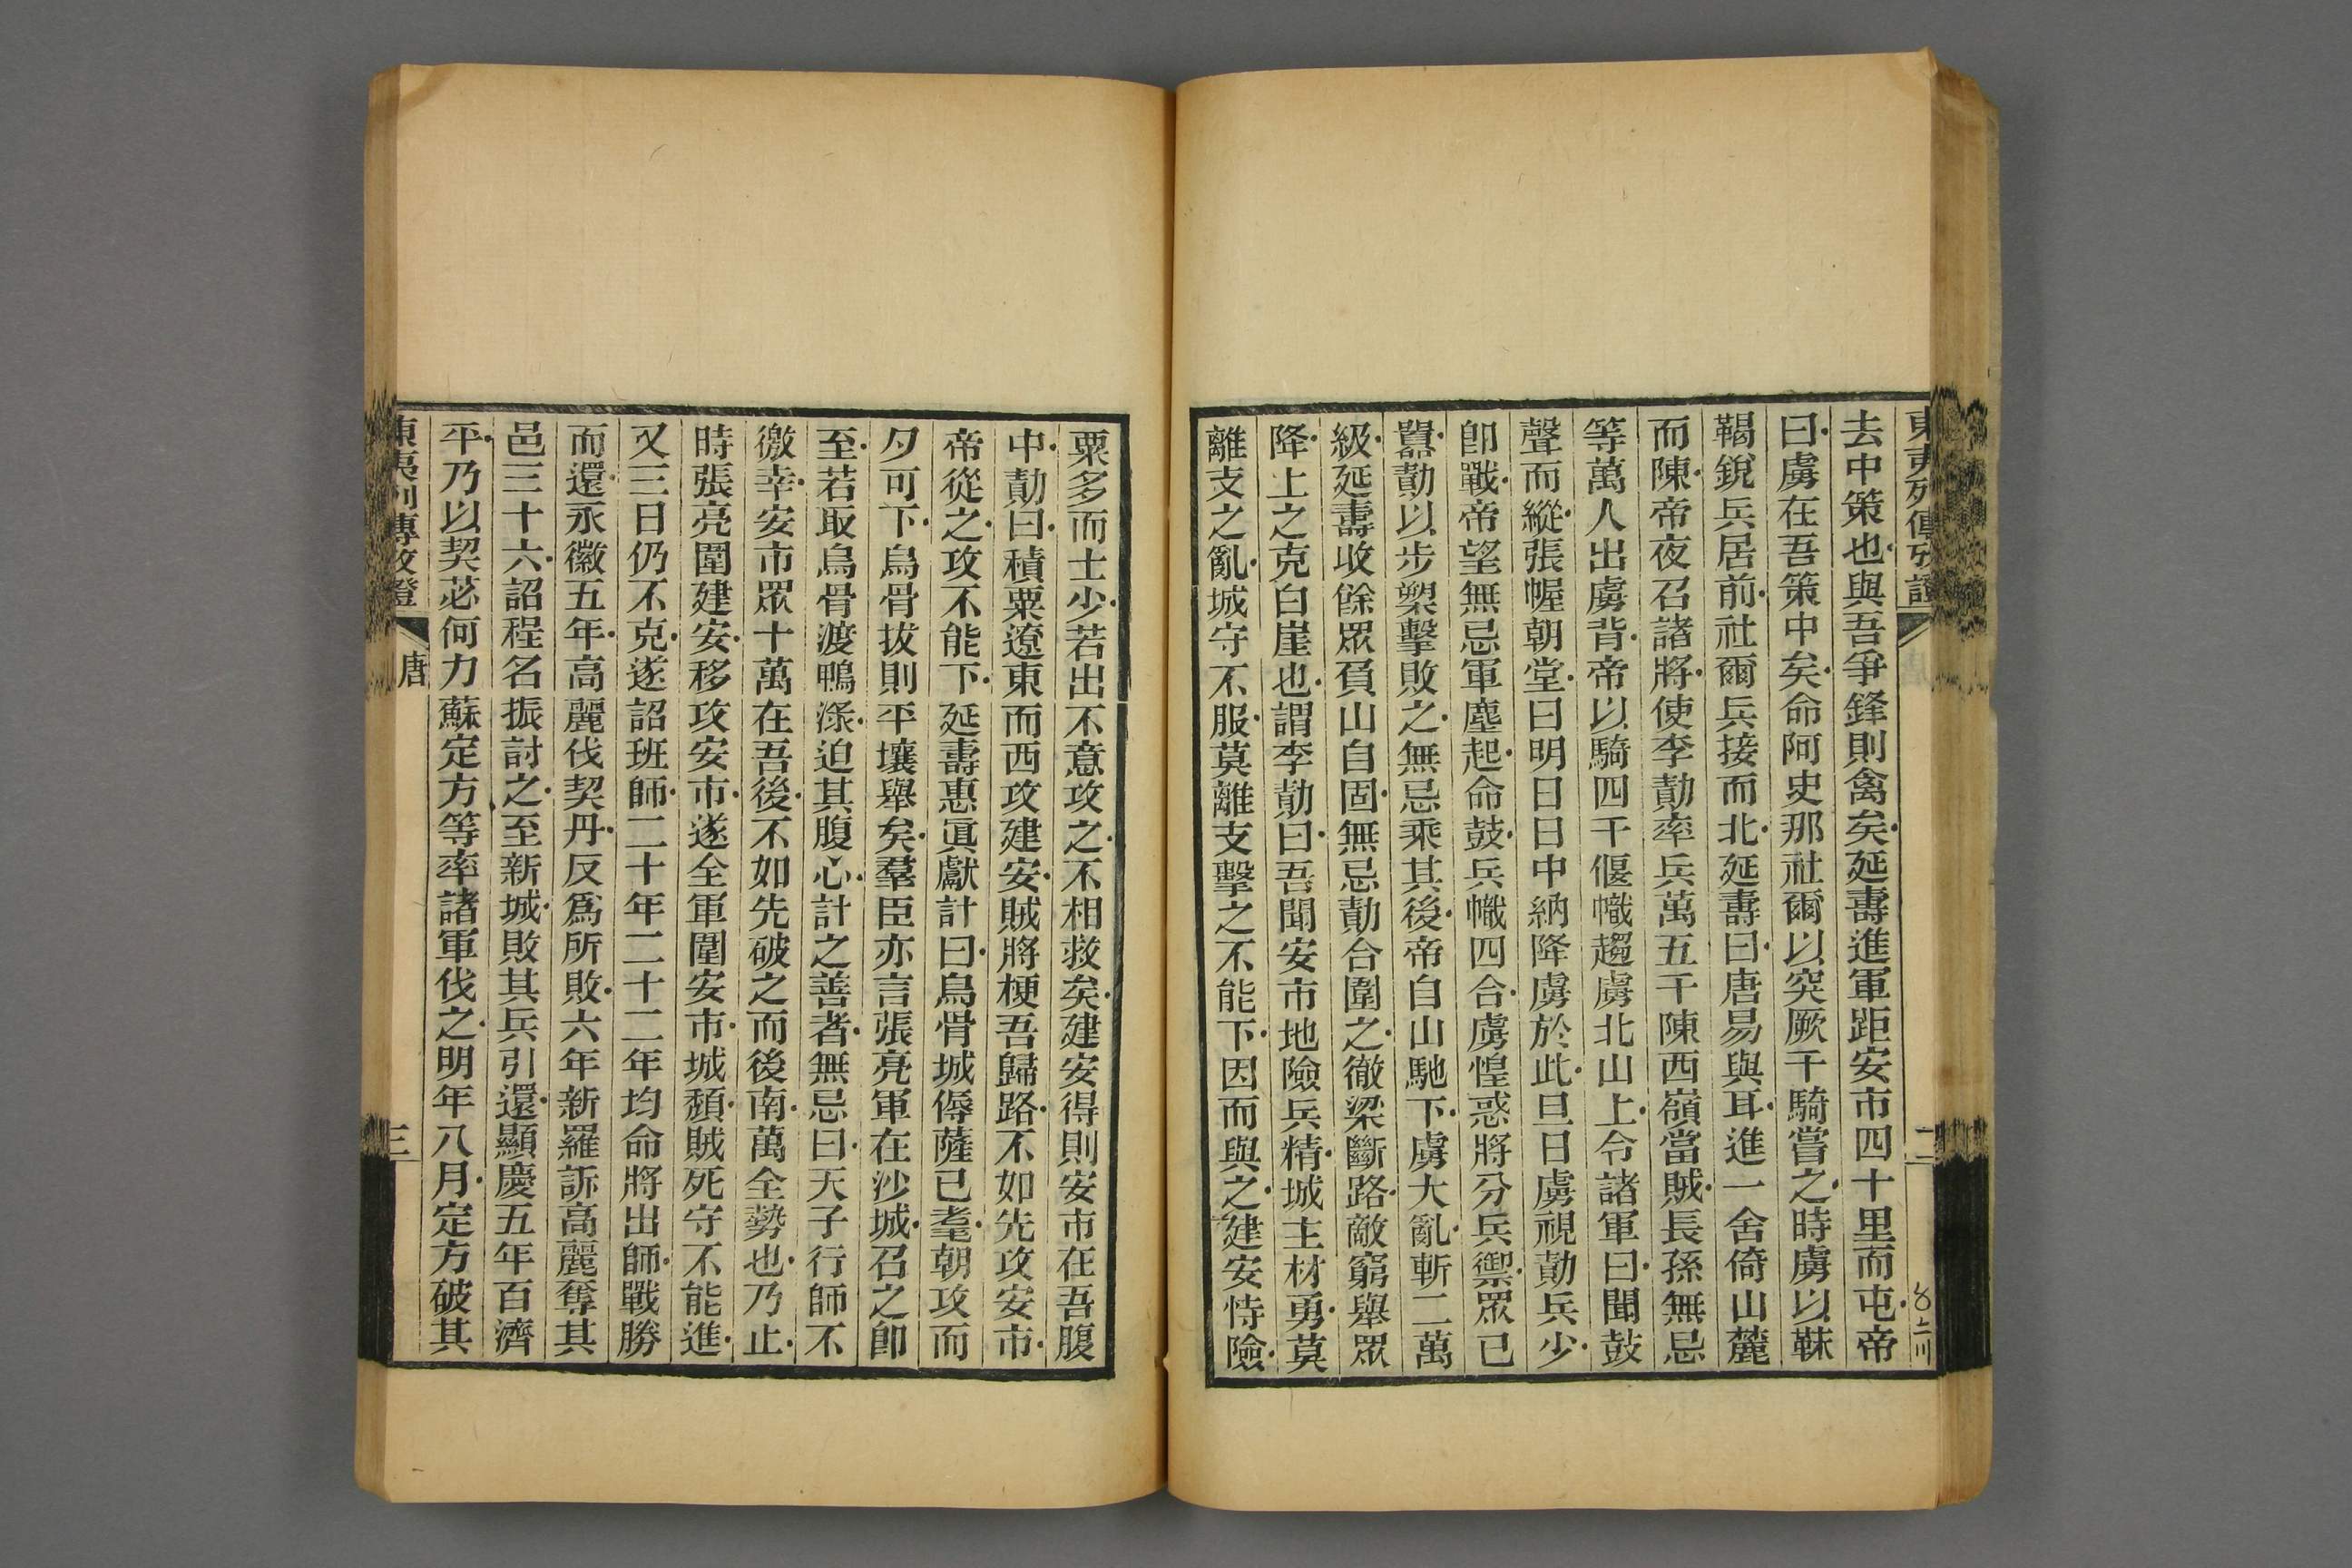 東夷列傳攷證
二
去中策也與吾爭鋒則禽矣延壽進軍距安市四十里而屯帝
曰虜在吾策中矣命阿史那社爾以突厥千騎嘗之時虜以靺
鞨銳兵居前社爾兵接而北延壽曰唐易與耳進一舍倚山麓
而陳帝夜召諸將使李勣率兵萬五千陳西嶺當賊長孫無忌
等萬人出虜背帝以騎四千偃幟趨虜北山上令諸軍曰聞鼓
聲而縱張幄朝堂曰明日日中納降虜於此旦日虜視勣兵少
卽戰帝望無忌軍塵起命鼓兵幟四合虜惶惑將分兵禦眾已
囂勣以步槊擊敗之無忌乘其後帝自山馳下虜大亂斬二萬
級延壽收餘眾負山自固無忌勣合圍之徹梁斷路敵窮舉眾
降上之克白崖也謂李勣曰吾聞安市地險兵精城主材勇莫
離支之亂城守不服莫離支擊之不能下因而與之建安恃險
粟多而士少若出不意攻之不相救矣建安得則安市在吾腹
中勣曰積粟遼東而西攻建安賊將梗吾歸路不如先攻安市
帝從之攻不能下延壽惠眞獻計曰烏骨城傉薩已耄朝攻而
夕可下烏骨拔則平壤舉矣羣臣亦言張亮軍在沙城召之卽
至若取烏骨渡鴨淥迫其腹心計之善者無忌曰天子行師不
徼幸安市眾十萬在吾後不如先破之而後南萬全勢也乃止
時張亮圍建安移攻安市遂全軍圍安市城頹賊死守不能進
又三日仍不克遂詔班師二十年二十二年均命將出師戰勝
而還永徽五年高麗伐契丹反爲所敗六年新羅訴高麗奪其
邑三十六詔程名振討之至新城敗其兵引還顯慶五年百濟
平乃以契苾何力蘇定方等率諸軍伐之明年八月定方破其
東夷列傳攷證
唐
三